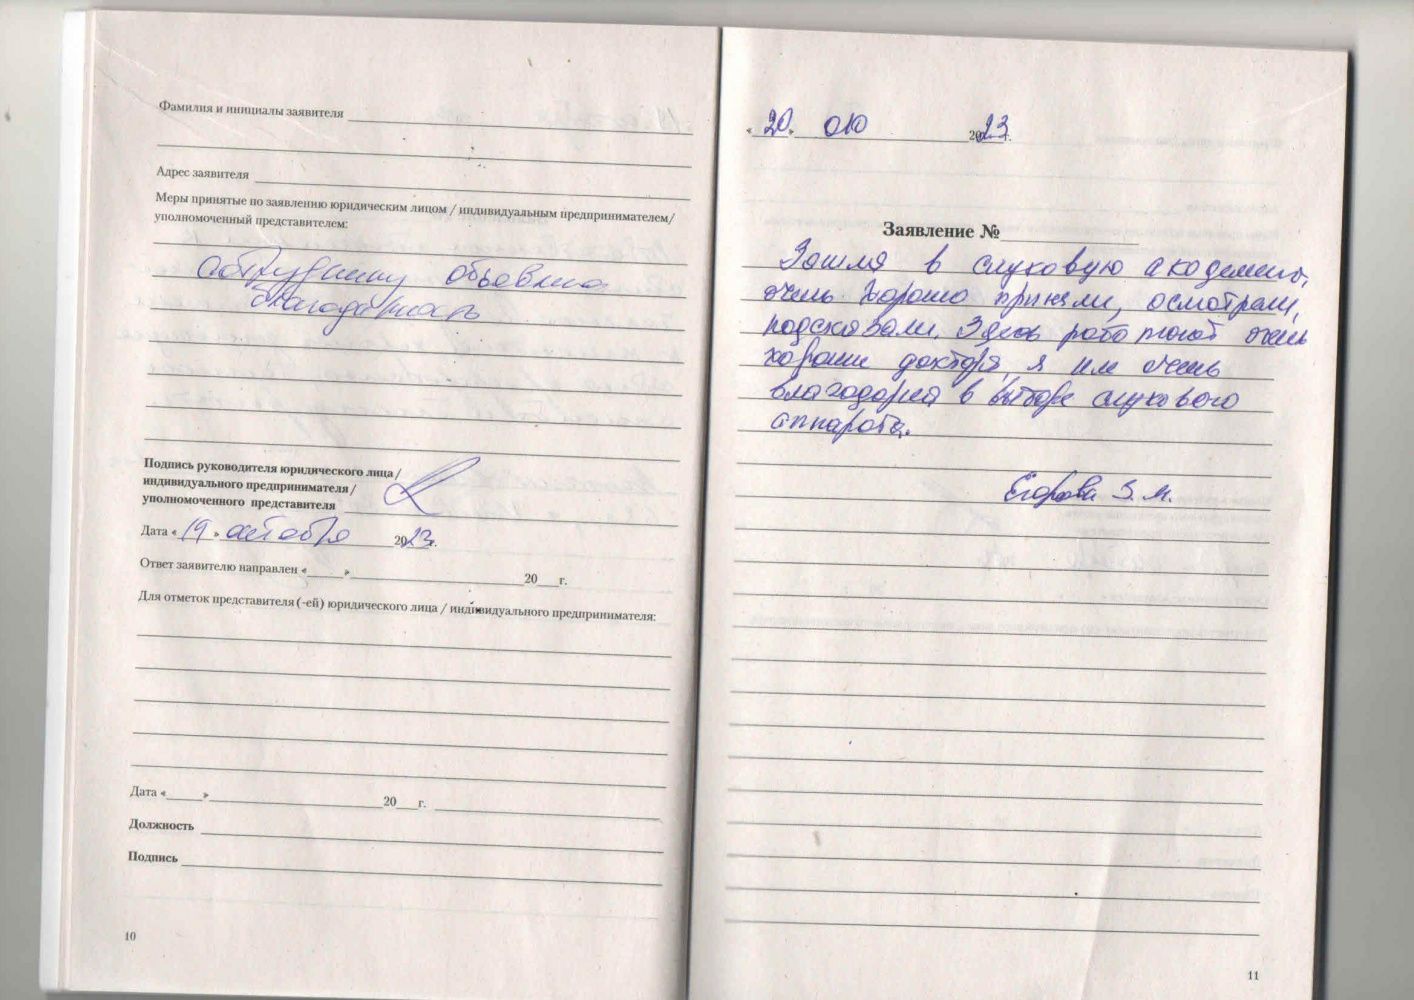 Фамилия и инициалы заявителя
Адрес заявителя
Меры принятые по заявлению юридическим лицом / индивидуальным предпринимателем/
уполномоченный представителем:
объявлена
благодарность
Подпись руководителя юридического лица /
индивидуального предпринимателя /
уполномоченного представителя
Дата « 19 » октября 2023г.
Ответ заявителю направлен «     »     20   г.
Для отметок представителя (-ей) юридического лица / индивидуального предпринимателя:
Дата «     »     20   г.
Должность
Подпись
10
« 20 »     2023г.
Заявление №
Зашла в слуховую академию,
очень хорошо приняли, осмотрели,
подсказали. Здесь работают очень
хорошие доктора, я им очень
благодарна в выборе слухового
аппарата.
Егорова З. М.
11